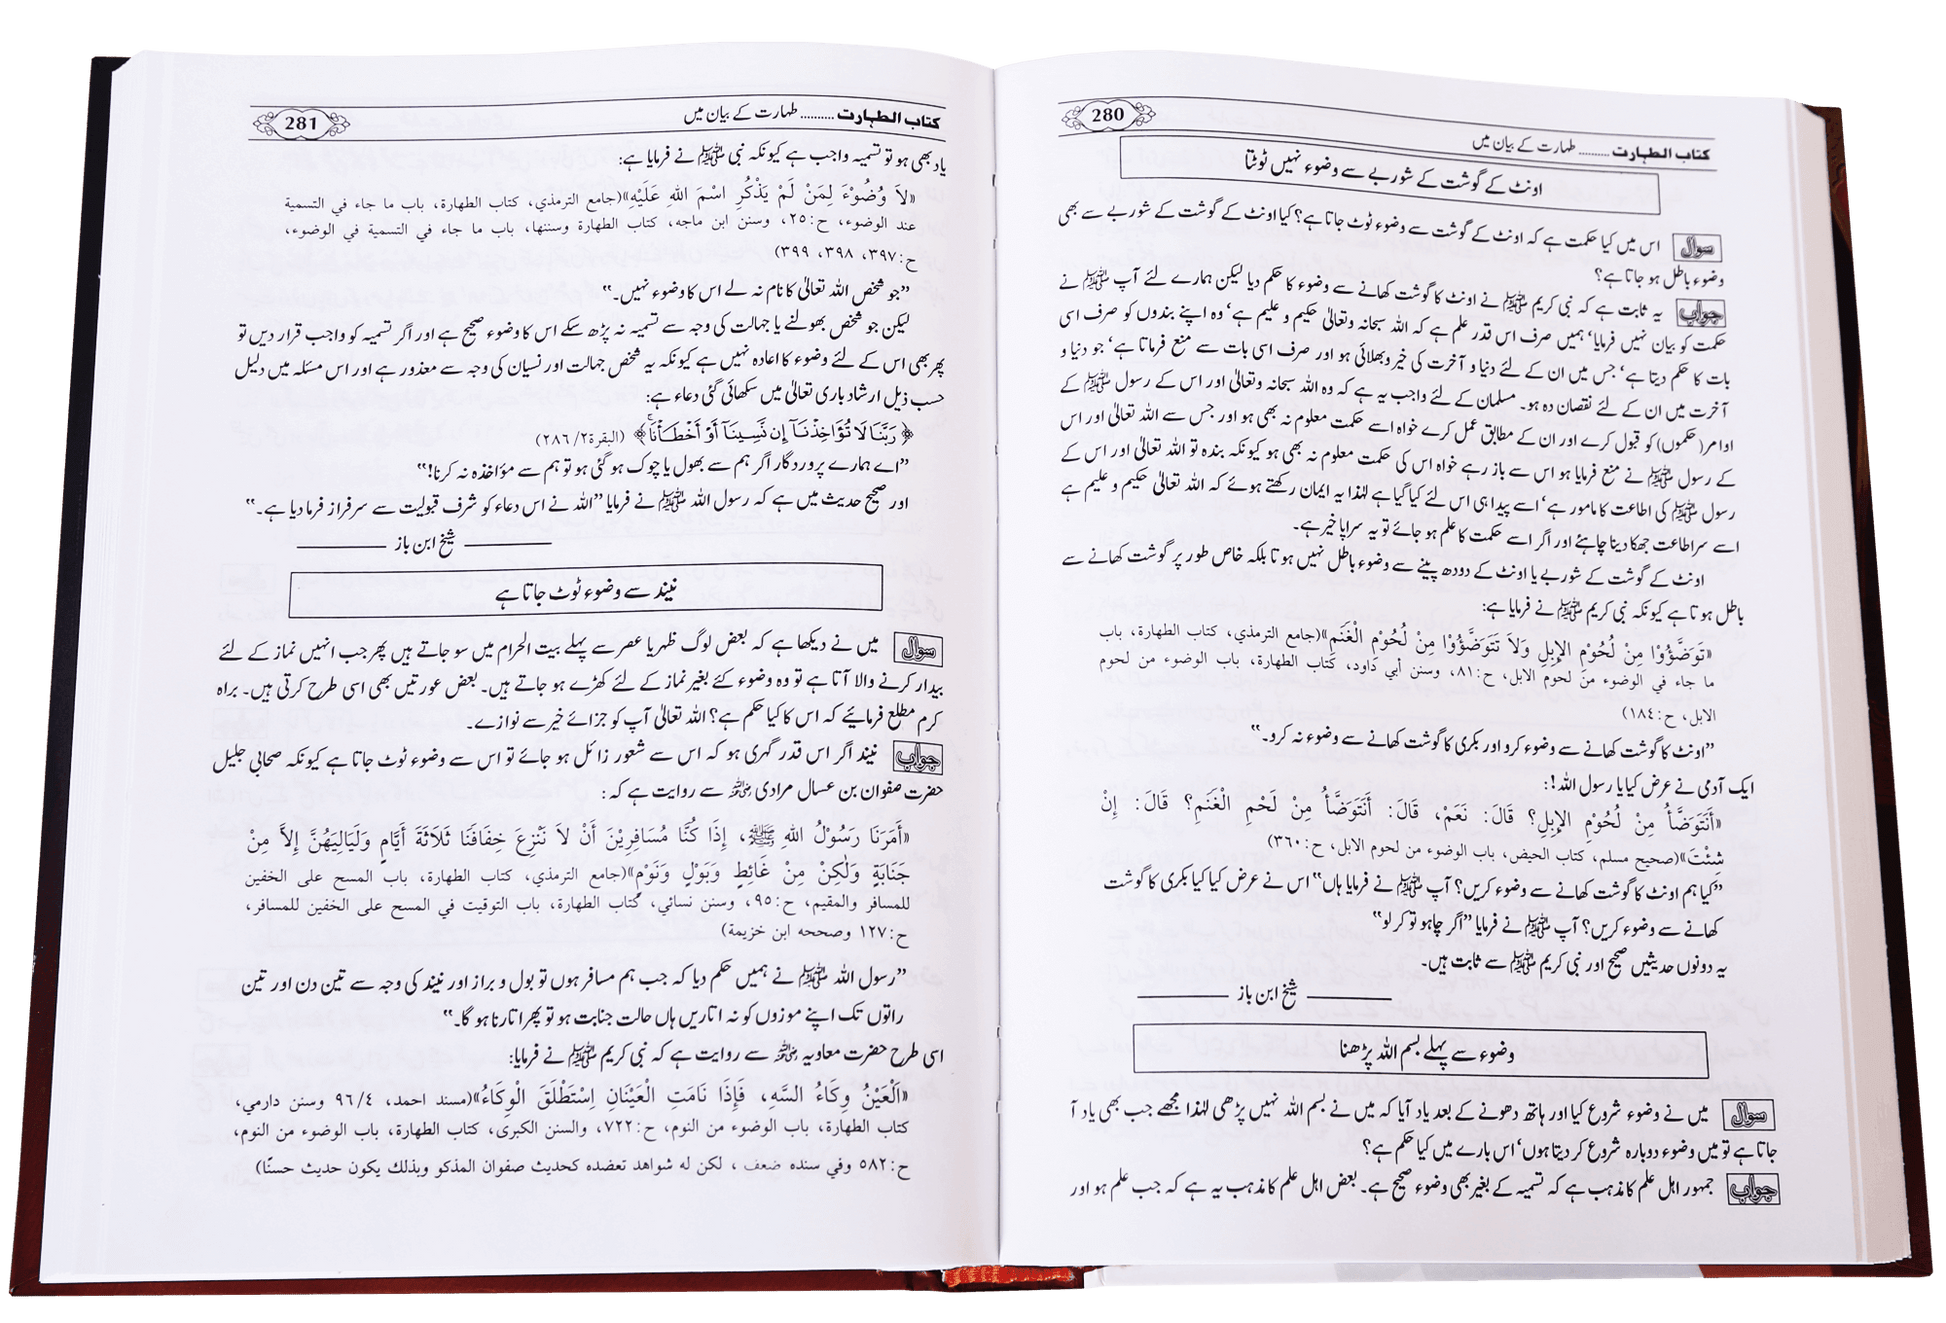 280
كتاب الطہارت .......... طہارت کے بیان میں
اونٹ کے گوشت کے شوربے سے وضوء نہیں ٹوٹتا
سوال اس میں کیا حکمت ہے کہ اونٹ کے گوشت سے وضوء ٹوٹ جاتا ہے؟ کیا اونٹ کے گوشت کے شوربے سے بھی
وضوء باطل ہو جاتا ہے؟
جواب یہ ثابت ہے کہ نبی کریم ﷺ نے اونٹ کا گوشت کھانے سے وضوء کا حکم دیا لیکن ہمارے لئے آپ ﷺ نے
حکمت کو بیان نہیں فرمایا' ہمیں صرف اس قدر علم ہے کہ اللہ سبحانہ وتعالیٰ حکیم و علیم ہے' وہ اپنے بندوں کو صرف اسی
بات کا حکم دیتا ہے' جس میں ان کے لئے دنیا و آخرت کی خیر وبھلائی ہو اور صرف اسی بات سے منع فرماتا ہے' جو دنیا و
آخرت میں ان کے لئے نقصان دہ ہو۔ مسلمان کے لئے واجب یہ ہے کہ وہ اللہ سبحانہ وتعالیٰ اور اس کے رسول ﷺ کے
اوامر (حکموں) کو قبول کرے اور ان کے مطابق عمل کرے خواہ اسے حکمت معلوم نہ بھی ہو اور جس سے اللہ تعالیٰ اور اس
کے رسول ﷺ نے منع فرمایا ہو اس سے باز رہے خواہ اس کی حکمت معلوم نہ بھی ہو کیونکہ بندہ تو اللہ تعالیٰ اور اس کے
رسول ﷺ کی اطاعت کا مامور ہے' اسے پیدا ہی اس لئے کیا گیا ہے لہٰذا یہ ایمان رکھتے ہوئے کہ اللہ تعالیٰ حکیم و علیم ہے
اسے سر اطاعت جھکا دینا چاہئے اور اگر اسے حکمت کا علم ہو جائے تو یہ سراپا خیر ہے۔
اونٹ کے گوشت کے شوربے یا اونٹ کے دودھ پینے سے وضوء باطل نہیں ہوتا بلکہ خاص طور پر گوشت کھانے سے
باطل ہوتا ہے کیونکہ نبی کریم ﷺ نے فرمایا ہے:
«تَوَضَّؤُوْا مِنْ لُحُوْمِ الإِبِلِ وَلاَ تَتَوَضَّؤُوْا مِنْ لُحُوْمِ الْغَنَمِ»(جامع الترمذي، كتاب الطهارة، باب
ما جاء في الوضوء من لحوم الابل، ح:٨١، وسنن أبي داود، كتاب الطهارة، باب الوضوء من لحوم
الابل، ح:١٨٤)
"اونٹ کا گوشت کھانے سے وضوء کرو اور بکری کا گوشت کھانے سے وضوء نہ کرو۔"
ایک آدمی نے عرض کیا یا رسول اللہ!:
«أَتَوَضَّأُ مِنْ لُحُوْمِ الإِبِلِ؟ قَالَ: نَعَمْ، قَالَ: أَنَتَوَضَّأُ مِنْ لَحْمِ الْغَنَمِ؟ قَالَ: إِنْ
شِئْتَ»(صحيح مسلم، كتاب الحيض، باب الوضوء من لحوم الابل، ح:٣٦٠)
"کیا ہم اونٹ کا گوشت کھانے سے وضوء کریں؟ آپ ﷺ نے فرمایا ہاں" اس نے عرض کیا کیا بکری کا گوشت
کھانے سے وضوء کریں؟ آپ ﷺ نے فرمایا "اگر چاہو تو کر لو"
یہ دونوں حدیثیں صحیح اور نبی کریم ﷺ سے ثابت ہیں۔
شیخ ابن باز
وضوء سے پہلے بسم اللہ پڑھنا
سوال میں نے وضوء شروع کیا اور ہاتھ دھونے کے بعد یاد آیا کہ میں نے بسم اللہ نہیں پڑھی لہٰذا مجھے جب بھی یاد آ
جاتا ہے تو میں وضوء دوبارہ شروع کر دیتا ہوں' اس بارے میں کیا حکم ہے؟
جواب جمہور اہل علم کا مذہب ہے کہ تسمیہ کے بغیر بھی وضوء صحیح ہے۔ بعض اہل علم کا مذہب یہ ہے کہ جب علم ہو اور
281
كتاب الطہارت .......... طہارت کے بیان میں
یاد بھی ہو تو تسمیہ واجب ہے کیونکہ نبی ﷺ نے فرمایا ہے:
«لاَ وُضُوْءَ لِمَنْ لَمْ يَذْكُرِ اسْمَ اللهِ عَلَيْهِ»(جامع الترمذي، كتاب الطهارة، باب ما جاء في التسمية
عند الوضوء، ح:٢٥، وسنن ابن ماجه، كتاب الطهارة وسننها، باب ما جاء في التسمية في الوضوء،
ح:٣٩٧، ٣٩٨، ٣٩٩)
"جو شخص اللہ تعالیٰ کا نام نہ لے اس کا وضوء نہیں۔"
لیکن جو شخص بھولنے یا جہالت کی وجہ سے تسمیہ نہ پڑھ سکے اس کا وضوء صحیح ہے اور اگر تسمیہ کو واجب قرار دیں تو
پھر بھی اس کے لئے وضوء کا اعادہ نہیں ہے کیونکہ یہ شخص جہالت اور نسیان کی وجہ سے معذور ہے اور اس مسئلہ میں دلیل
حسب ذیل ارشاد باری تعالیٰ میں سکھائی گئی دعاء ہے:
﴿رَبَّنَا لَا تُؤَاخِذْنَآ إِن نَّسِينَآ أَوْ أَخْطَأْنَا﴾ (البقرة٢/٢٨٦)
"اے ہمارے پروردگار اگر ہم سے بھول یا چوک ہو گئی ہو تو ہم سے مؤاخذہ نہ کرنا!"
اور صحیح حدیث میں ہے کہ رسول اللہ ﷺ نے فرمایا "اللہ نے اس دعاء کو شرف قبولیت سے سرفراز فرما دیا ہے۔"
شیخ ابن باز
نیند سے وضوء ٹوٹ جاتا ہے
سوال میں نے دیکھا ہے کہ بعض لوگ ظہر یا عصر سے پہلے بیت الحرام میں سو جاتے ہیں پھر جب انہیں نماز کے لئے
بیدار کرنے والا آتا ہے تو وہ وضوء کئے بغیر نماز کے لئے کھڑے ہو جاتے ہیں۔ بعض عورتیں بھی اسی طرح کرتی ہیں۔ براہ
کرم مطلع فرمائیے کہ اس کا کیا حکم ہے؟ اللہ تعالیٰ آپ کو جزائے خیر سے نوازے۔
جواب نیند اگر اس قدر گہری ہو کہ اس سے شعور زائل ہو جائے تو اس سے وضوء ٹوٹ جاتا ہے کیونکہ صحابی جلیل
حضرت صفوان بن عسال مرادی رضی اللہ عنہ سے روایت ہے کہ :
«أَمَرَنَا رَسُوْلُ اللهِ ﷺ، إِذَا كُنَّا مُسَافِرِيْنَ أَنْ لاَ نَنْزِعَ خِفَافَنَا ثَلاَثَةَ أَيَّامٍ وَلَيَالِيَهُنَّ إِلاَّ مِنْ
جَنَابَةٍ وَلَكِنْ مِنْ غَائِطٍ وَبَوْلٍ وَنَوْمٍ»(جامع الترمذي، كتاب الطهارة، باب المسح على الخفين
للمسافر والمقيم، ح:٩٥، وسنن نسائي، كتاب الطهارة، باب التوقيت في المسح على الخفين للمسافر،
ح:١٢٧ وصححه ابن خزيمة)
"رسول اللہ ﷺ نے ہمیں حکم دیا کہ جب ہم مسافر ہوں تو بول و براز اور نیند کی وجہ سے تین دن اور تین
راتوں تک اپنے موزوں کو نہ اتاریں ہاں حالت جنابت ہو تو پھر اتارنا ہو گا۔"
اسی طرح حضرت معاویہ رضی اللہ عنہ سے روایت ہے کہ نبی کریم ﷺ نے فرمایا:
«اَلْعَيْنُ وِكَاءُ السَّهِ، فَإِذَا نَامَتِ الْعَيْنَانِ اِسْتَطْلَقَ الْوِكَاءُ»(مسند احمد، ٩٦/٤ وسنن دارمي،
كتاب الطهارة، باب الوضوء من النوم، ح:٧٢٢، والسنن الكبرى، كتاب الطهارة، باب الوضوء من النوم،
ح:٥٨٢ وفي سنده ضعف ، لكن له شواهد تعضده كحديث صفوان المذكو وبذلك يكون حديث حسنًا)